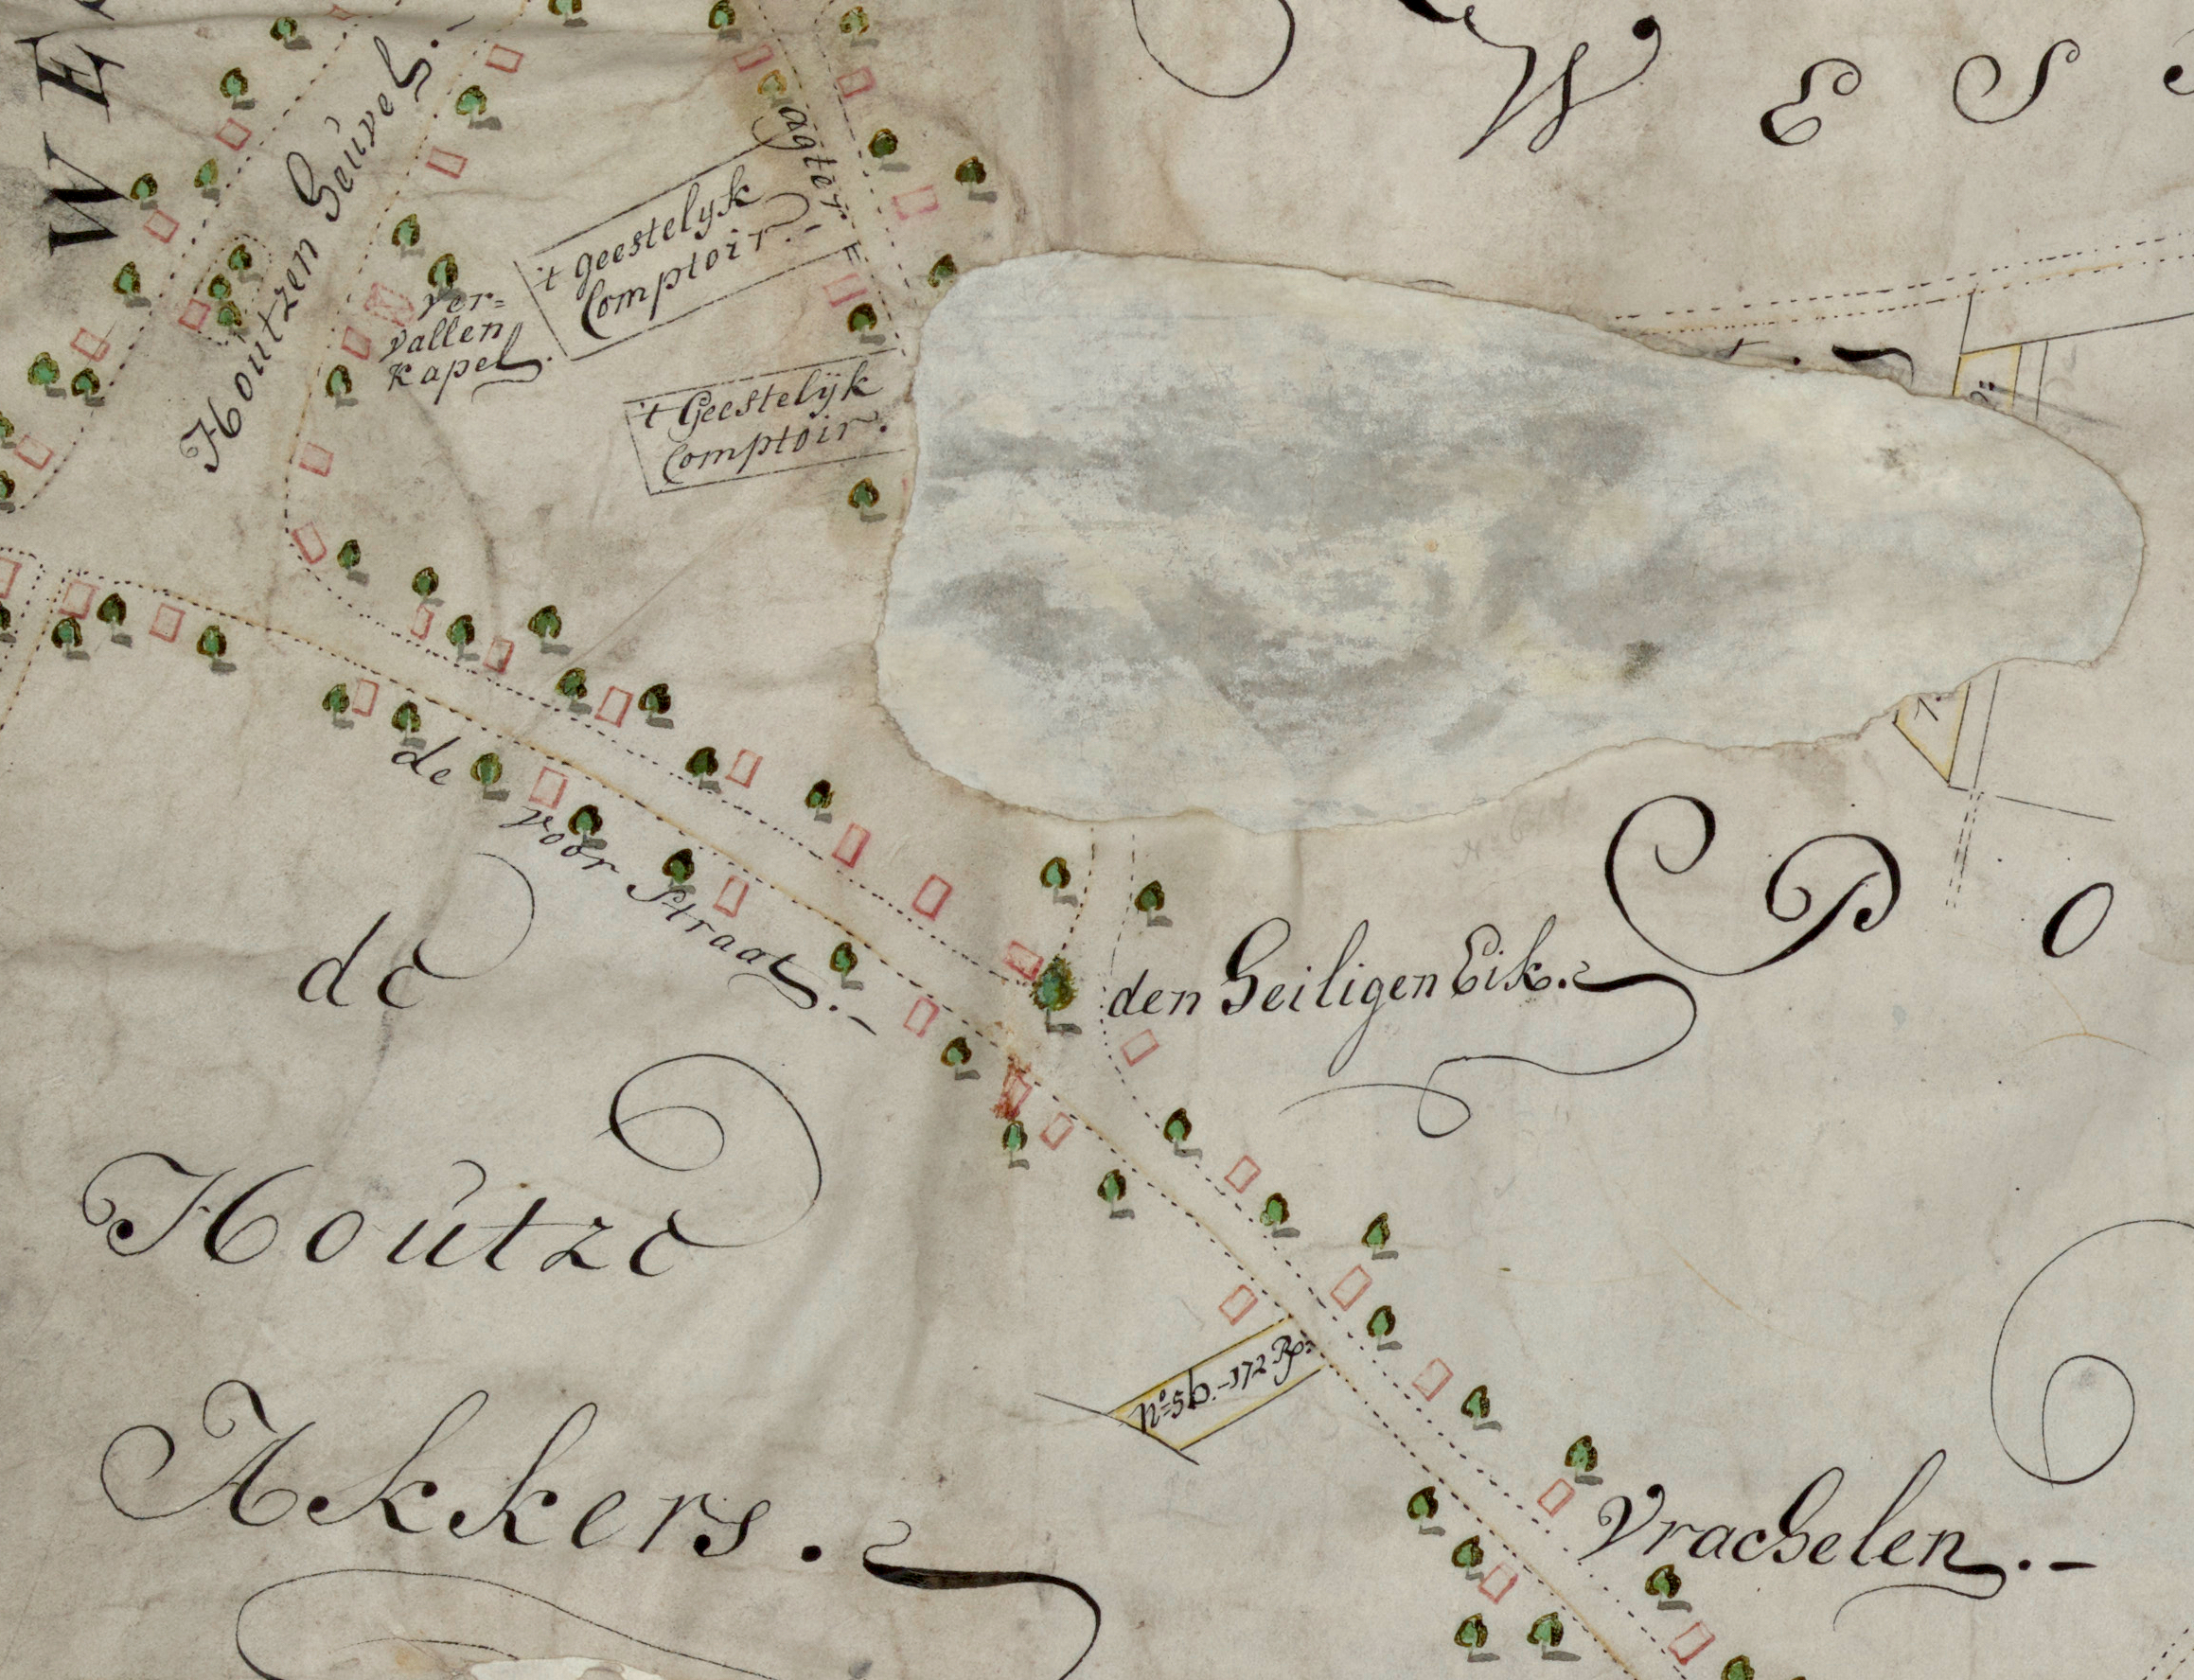 WE
WES
Houtzen Heuvel.
agter
't geestelyk
Comptoir.
Ver=
vallen
Kapel.
't Geestelÿk
Comptoir.
1.
de voor Straat.
den Heiligen Eik.
PO
de
Houtze
Akkers.
No. 5
Vrachelen.